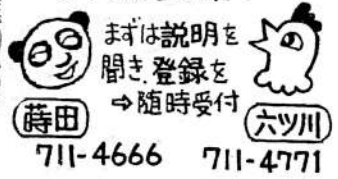 まずは説明を
聞き、登録を
⇒随時受付
蒔田
六ツ川
711-4666
711-4771